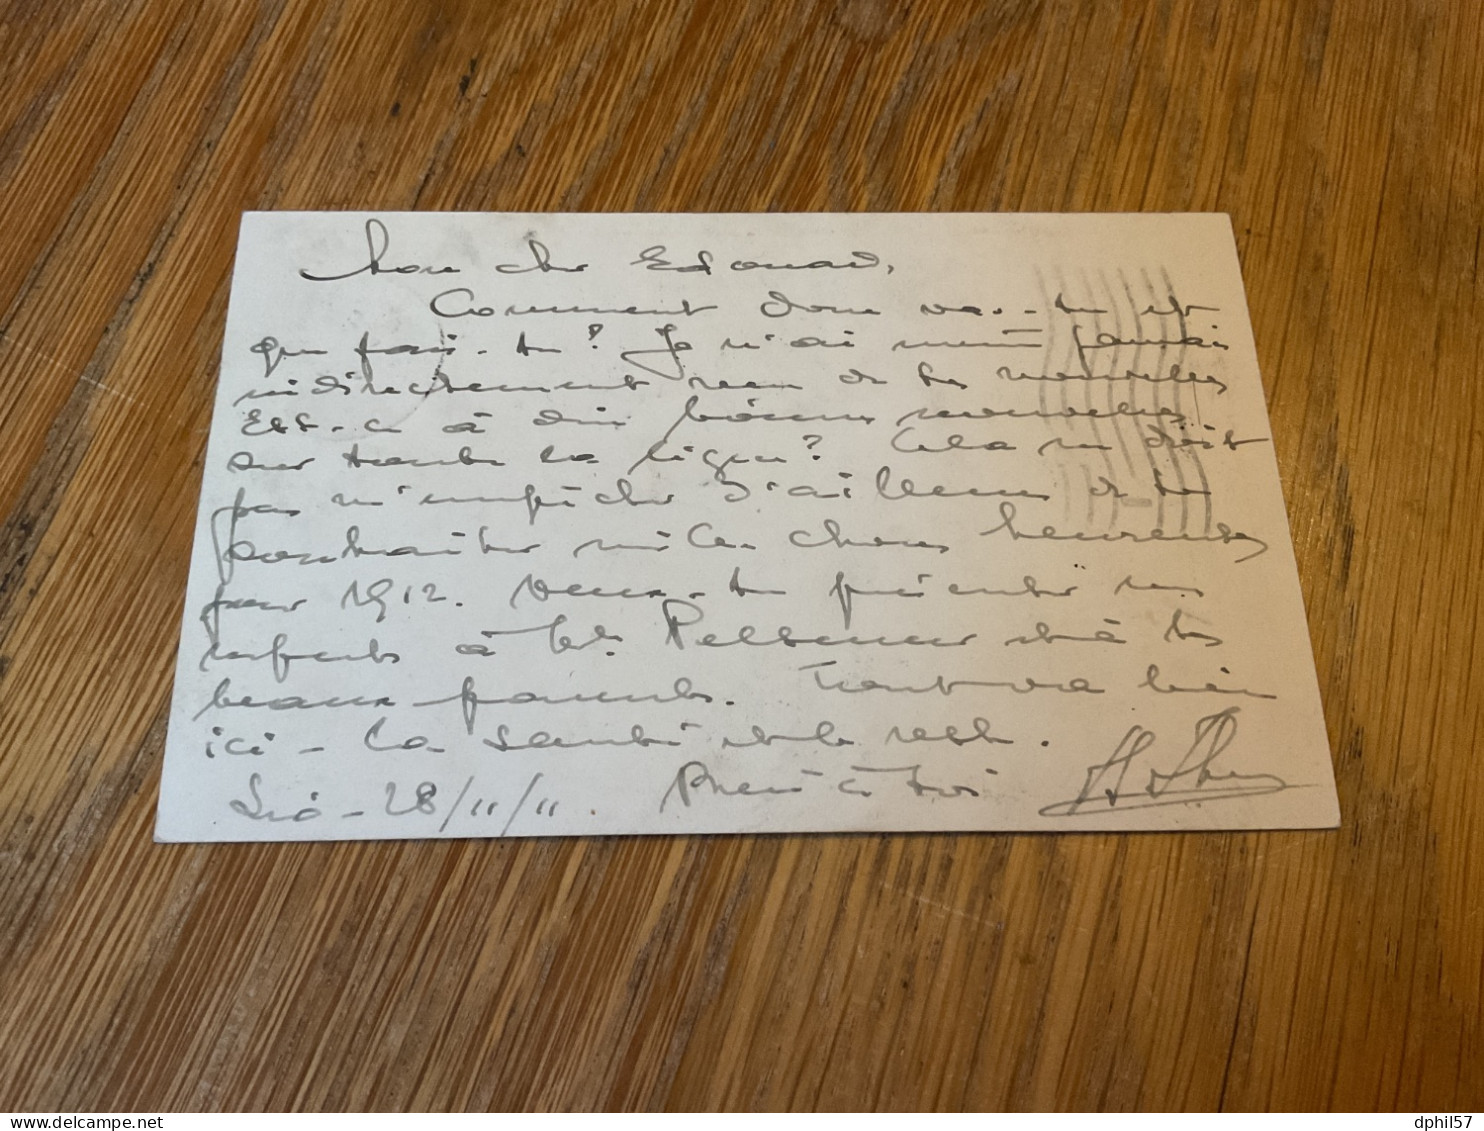 Mon cher Edouard,
Comment donc vas-tu et
que fais-tu? Je n'ai même jamais
indirectement rien de tes nouvelles
Est-ce à dire bonnes nouvelles
sur toute la ligne? Cela ne doit
pas m'empêcher d'ailleurs de te
souhaiter mille choses heureuses
pour 1912. Veux-tu présenter mes
à Pelletier et à tes
beaux-parents. Tout va bien
ici - la santé et le reste.
28/11/11. à toi
delcampe.net
dphil57